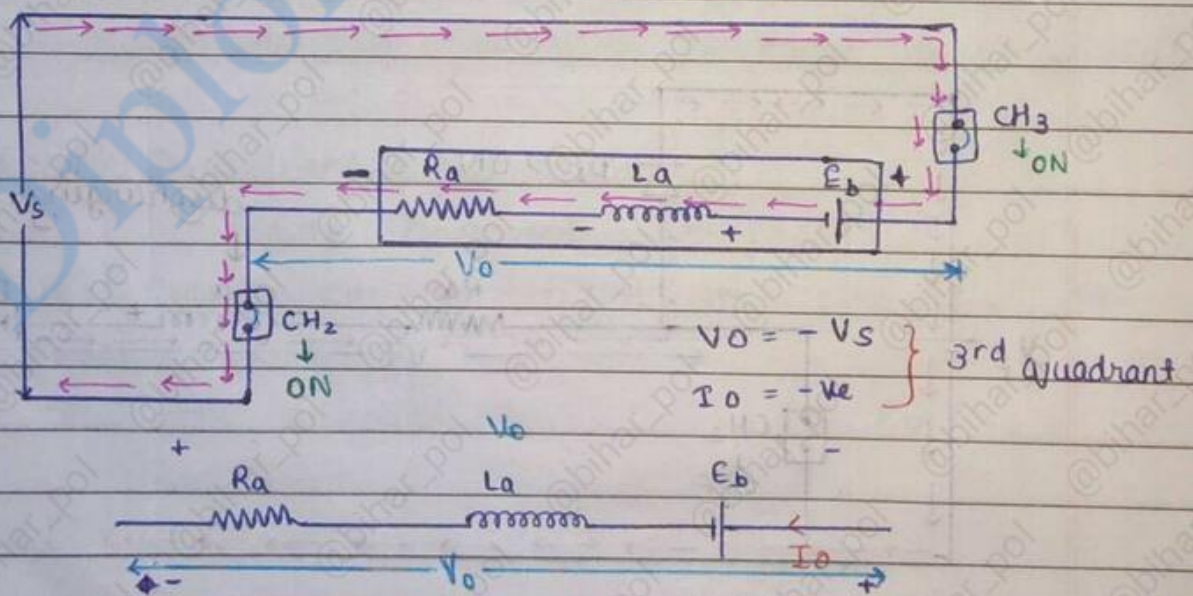 CH3
↓ ON
- Ra La Eb +
Vs
- +
Vo
CH2
↓
ON
VO = - VS
IO = -Ve
} 3rd Quadrant
Vo
+ -
Ra La Eb
Io
- Vo +
@bihar_pol